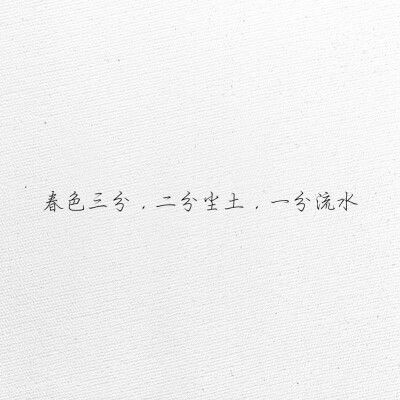 春色三分，二分尘土，一分流水